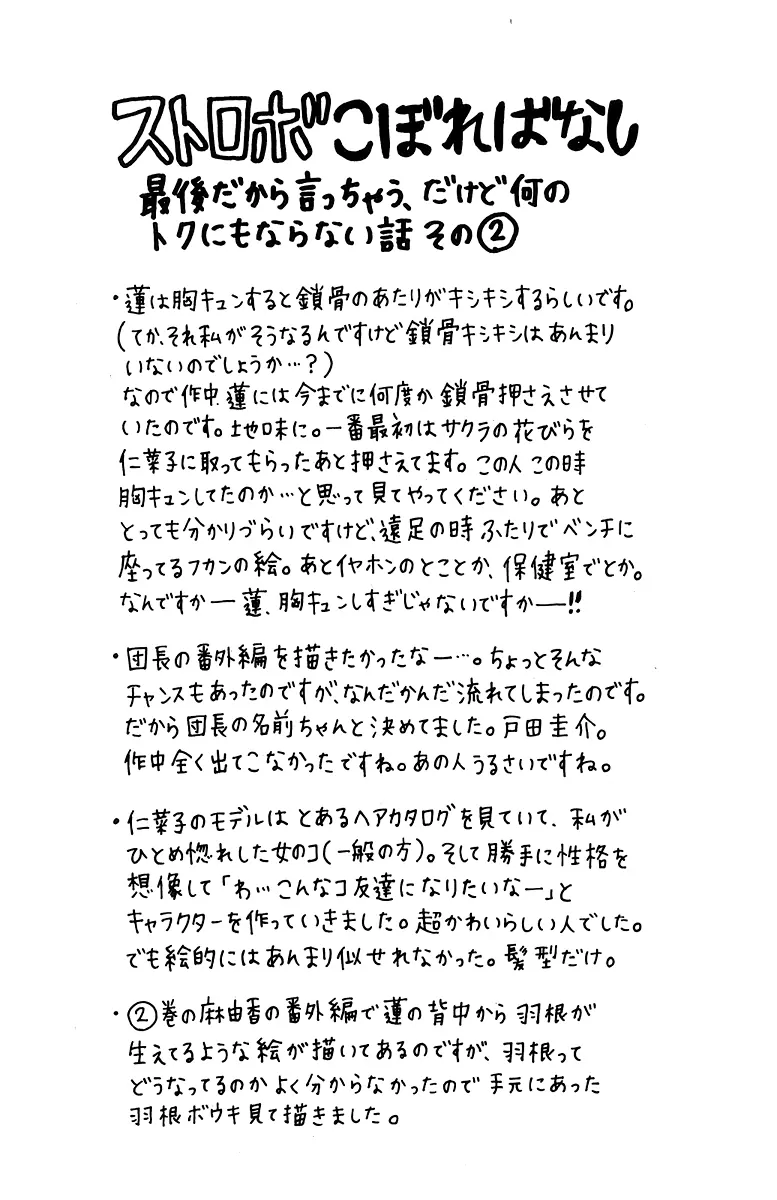 ストロボこぼればなし
最後だから言っちゃう、だけど何の
トクにもならない話 その②
・蓮は胸キュンすると鎖骨のあたりがキシキシするらしいです。
(てか、それ私がそうなるんですけど鎖骨キシキシはあんまり
いないのでしょうか…?)
なので作中、蓮には今までに何度か鎖骨押さえさせて
いたのです。地味に。一番最初はサクラの花びらを
仁菜子に取ってもらったあと押さえてます。この人この時
胸キュンしてたのか…と思って見てやってください。あと
とっても分かりづらいですけど、遠足の時ふたりでベンチに
座ってるフカンの絵。あとイヤホンのとことか、保健室でとか。
なんですかー蓮、胸キュンしすぎじゃないですかー!!
・団長の番外編を描きたかったなー…。ちょっとそんな
チャンスもあったのですが、なんだかんだ流れてしまったのです。
だから団長の名前ちゃんと決めてました。戸田圭介。
作中全く出てこなかったですね。あの人うるさいですね。
・仁菜子のモデルは とあるヘアカタログを見ていて、私が
ひとめ惚れした女のコ(一般の方)。そして勝手に性格を
想像して「わぃこんなコ友達になりたいなー」と
キャラクターを作っていきました。超かわいらしい人でした。
でも絵的にはあんまり似せれなかった。髪型だけ。
・②巻の麻由香の番外編で蓮の背中から羽根が
生えてるような絵が描いてあるのですが、羽根って
どうなってるのかよく分からなかったので手元にあった
羽根ボウキ見て描きました。